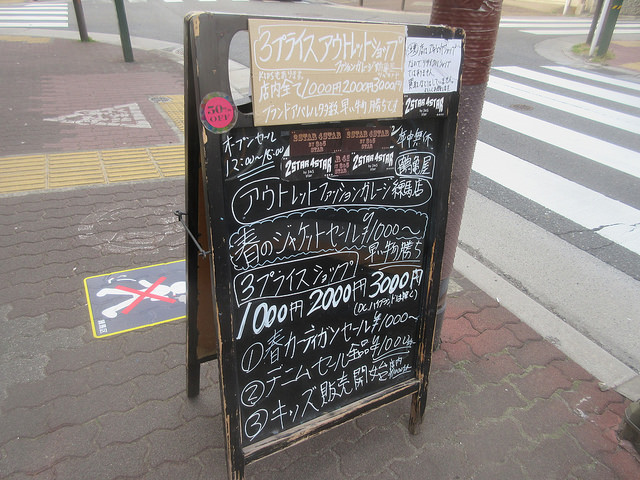 3プライスアウトレットショップ
ファッションガレージ
店内全て1000円2000円3000円
ブランドアパレル多数 早い物勝ち
50%
OFF
2STAR 4STAR
オープンセール
12:00~18:00
2STAR 4STAR
2STAR 4STAR
2STAR 4STAR
2STAR 4STAR
年中無休
鶴亀屋
アウトレットファッションガレージ練馬店
春のジャケットセール¥1000~
早い物勝ち
3プライスショップ
1000円 2000円 3000円
①春カーディガンセール¥1000~
②デニムセール全品¥1000
③キッズ販売開始 店内